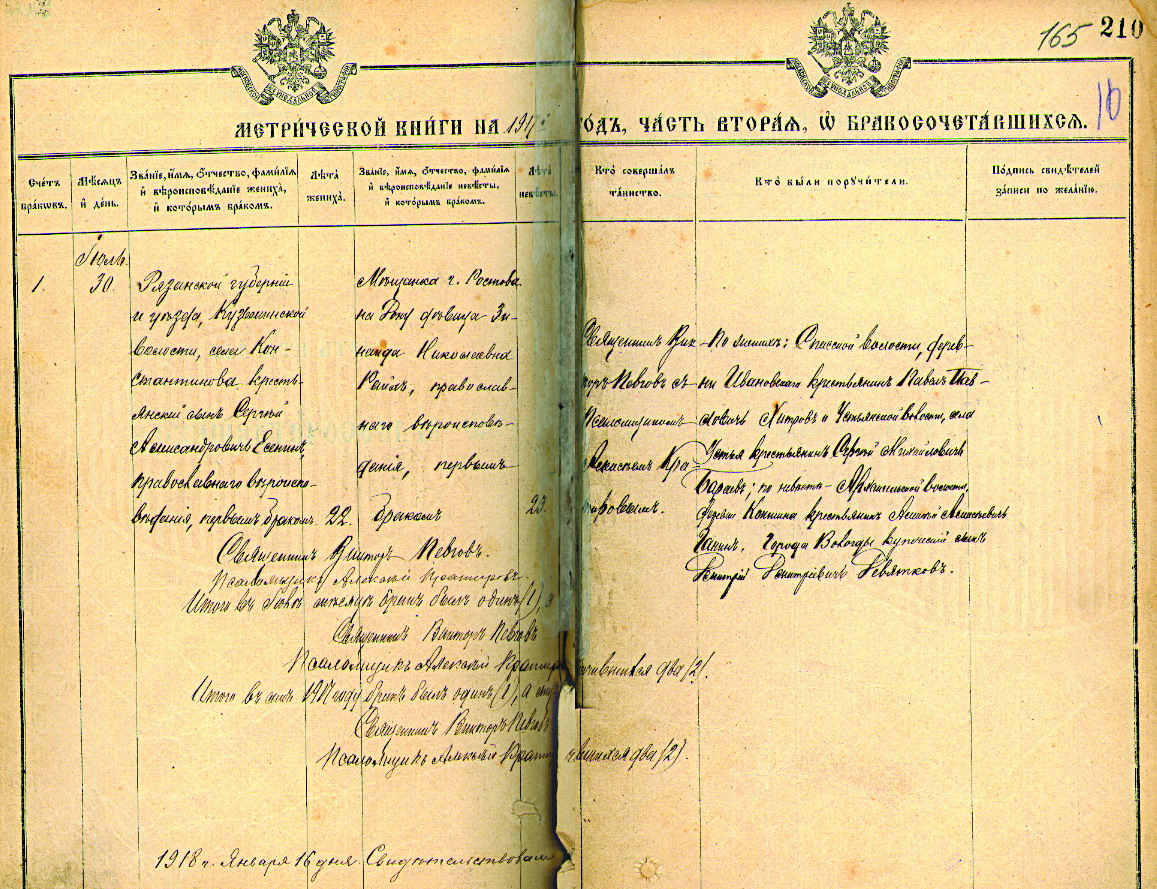 165 210
10
МЕТРИЧЕСКОЙ КНИГИ НА 1917 ГОДЪ, ЧАСТЬ ВТОРАЯ, Ѽ БРАКОСОЧЕТАВШИХСЯ.
Счетъ браковъ.
Мѣсяцъ и день.
Званіе, имя, отчество, фамилія и вѣроисповѣданіе жениха, и которымъ бракомъ.
Лѣта жениха.
Званіе, имя, отчество, фамилія и вѣроисповѣданіе невѣсты, и которымъ бракомъ.
Лѣта невѣсты.
Кто совершалъ таинство.
Кто были поручители.
Подпись свидѣтелей записи по желанію.
1.
Іюль
30.
Рязанской губерніи
и уѣзда, Кузьминской
волости, села Кон-
стантинова кресть-
янскій сынъ Сергѣй
Александровичъ Есенинъ,
православнаго вѣроиспо-
вѣданія, первымъ бракомъ.
22.
Мѣщанка г. Ростова
на Дону дѣвица Зи-
наида Николаевна
Райхъ, православ-
наго вѣроисповѣ-
данія, первымъ
бракомъ
23.
Священникъ Вик-
торъ Пѣвговъ съ
Псаломщикомъ
Алексѣемъ Кра-
тировымъ.
По женихѣ: Спасской волости, дерев-
ни Ивановской крестьянинъ Павелъ Пав-
ловичъ Хитровъ и Устьянской волости, села
Устья крестьянинъ Сергѣй Михайловичъ
Бараевъ; по невѣстѣ - Архангельской волости,
деревни Коншина крестьянинъ Алексѣй Алексѣевичъ
Ганинъ, города Вологды купеческій сынъ
Дмитрій Дмитріевичъ Девятковъ.
Священникъ Викторъ Пѣвговъ.
Псаломщикъ Алексѣй Кратировъ.
Итого въ Іюлѣ мѣсяцѣ бракъ былъ одинъ (1), а
Священникъ Викторъ Пѣвговъ
Псаломщикъ Алексѣй Кратир
чившихся два (2).
Итого въ семъ 1917 году бракъ былъ одинъ (1), а
Священникъ Викторъ Пѣвговъ
Псаломщикъ Алексѣй Кратир
вшихся два (2).
1918 г. Января 16 дня. Свидѣтельствовалъ